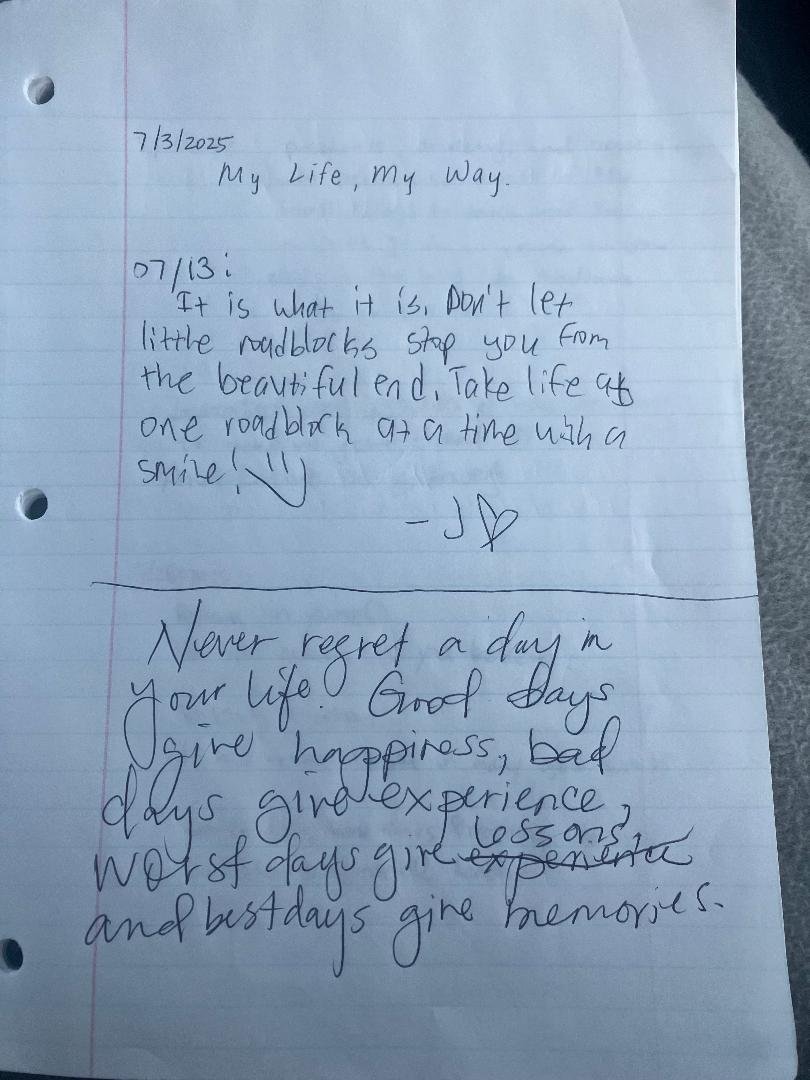 7/3/2025
My Life, My Way.
07/13:
It is what it is. Don't let
little roadblocks stop you from
the beautiful end. Take life at
one roadblock at a time with a
smile!
- J
Never regret a day in
your life. Good Days
give happpiness, bad
days give experience,
lessons,
worst days give experience
and best days give memories.